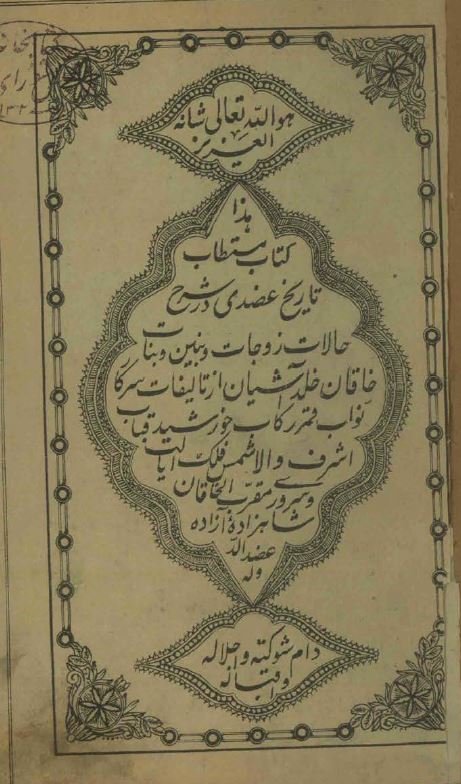 هو الله تعالی شانه
العزیز
هذا
کتاب مستطاب
تاریخ عضدی در شرح
حالات زوجات و بنین و بنات
خاقان خلد آشیان از تالیفات سرکا
نواب قمر رکاب خورشید قباب
اشرف والا شمس فلک ایالت
و سروری مقرب الخاقان
شاهزاده آزاده
عضد الد
وله
دام شوکته و جلاله
و اقباله